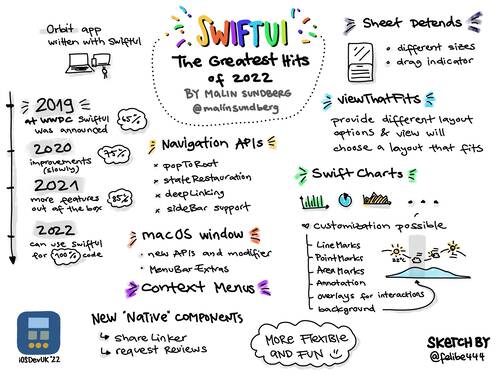 Orbit app
written with SwiftUI
SWIFTUI
The Greatest Hits
of 2022
BY MALIN SUNDBERG
@malinsundberg
2019
at WWDC SwiftUI
was announced
65%
2020
improvements
(slowly)
75%
2021
more features
out of the box
85%
2022
can use SwiftUI
for 100% code
Navigation APIs
popToRoot
stateRestauration
deepLinking
sideBar support
macOS window
new APIs and modifier
MenuBar Extras
Context Menus
NEW "NATIVE" COMPONENTS
shareLinker
request Reviews
Sheet Detends
different sizes
drag indicator
viewThatFits
provide different layout
options & view will
choose a layout that fits
Swift Charts
...
customization possible
LineMarks
PointMarks
AreaMarks
Annotation
overlays for interactions
background
MORE FLEXIBLE
AND FUN
iOSDevUK '22
SKETCH BY
@falibe444